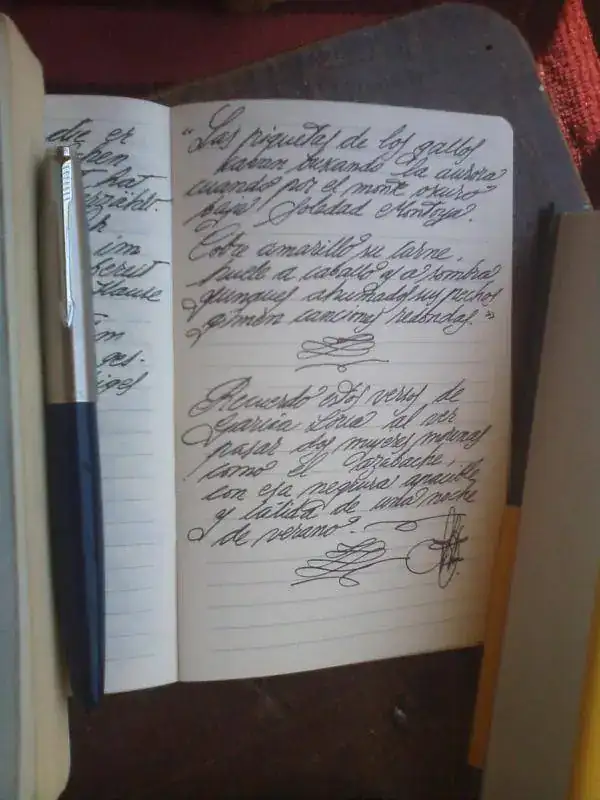 die er
hat
erzählt.
im
Hause
ges-
"Las piquetas de los gallos
kavan buxando la aurora
cuando por el monte oscuro
baja Soledad Montoya.
Cobre amarillo su carne,
huele a caballo y a sombra
Yunques ahumados sus pechos
gimen canciones redondas."
Recuerdo estos versos de
García Lorca al ver
pasar dos mujeres morenas
como el azabache,
con esa negrura apacible
y cálida de una noche
de verano.